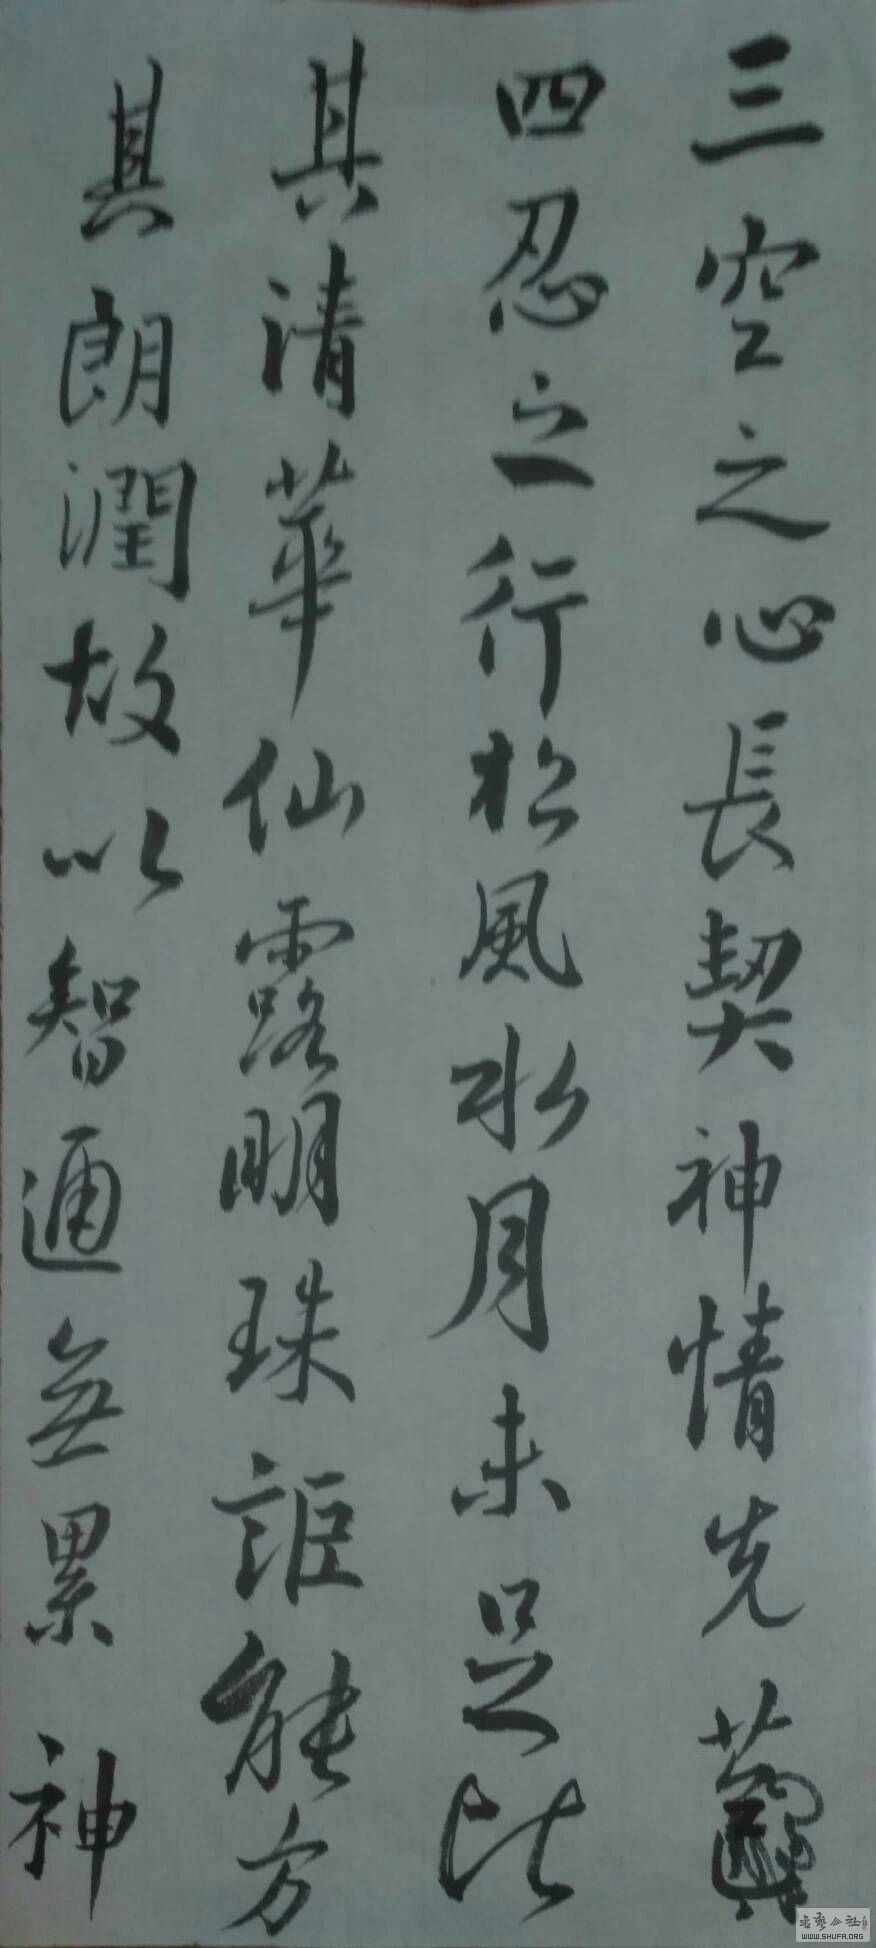 三空之心長契神情先
四忍之行松風水月未足比
其清華仙露明珠詎能方
其朗潤故以智通無累神
WWW.SHUFA.ORG